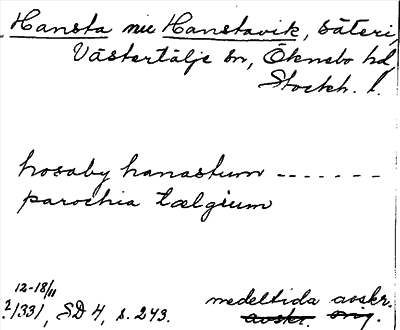 Hansta nu Hanstavik, säteri,
Västertälje sn, Öknebo hd,
Stockh. l.
hosaby hanastum -------
parochia tælgium
12-18/11
?/1331, SD 4, s. 243. medeltida avskr.
avskr. orig.